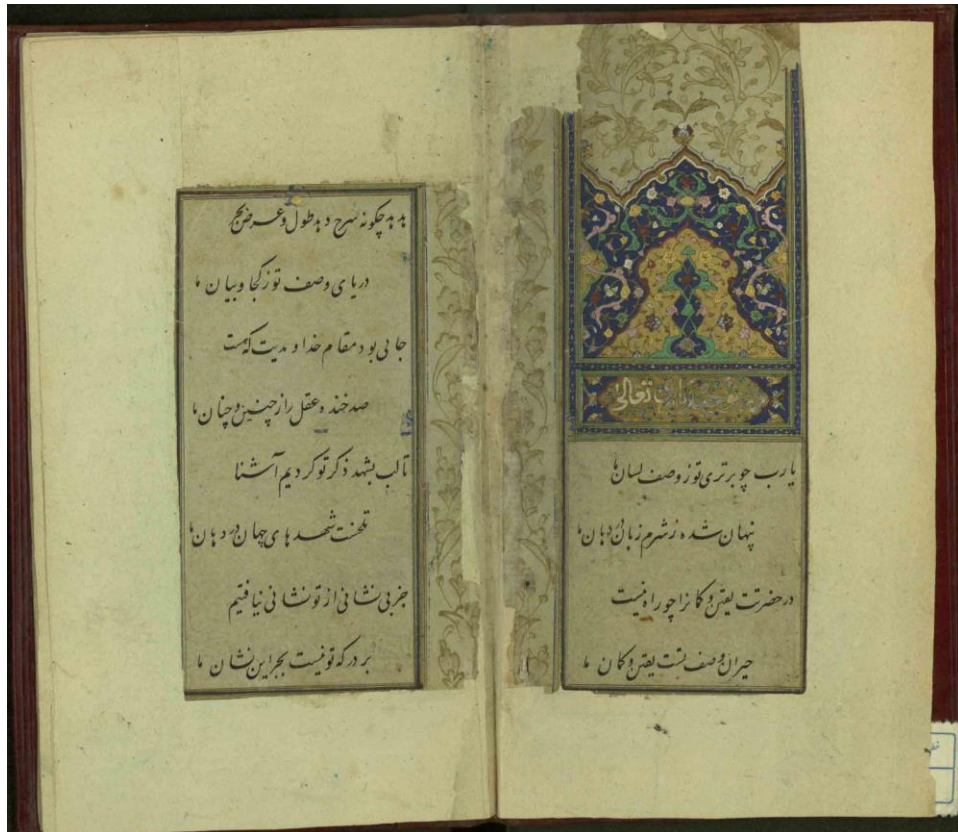 تعالی
یارب چو برتری تو ز وصف لسان ما
پنهان شده ز شرم زبان در دهان ما
در حضرتت یقین و کمانرا چو راه نیست
حیران وصف تست یقین و کمان ما
هدهد چکونه شرح دهد طول و عرض بحر
دریای وصف تو ز کجا و بیان ما
جایی بود مقام خداوندیت که هست
صد خنده عقل را ز چنین و چنان ما
تا لب بشهد ذکر تو کردیم آشنا
تلخست شهدهای جهان در دهان ما
جز بی نشانی از تو نشانی نیافتیم
بر درکه تو نیست بجز این نشان ما